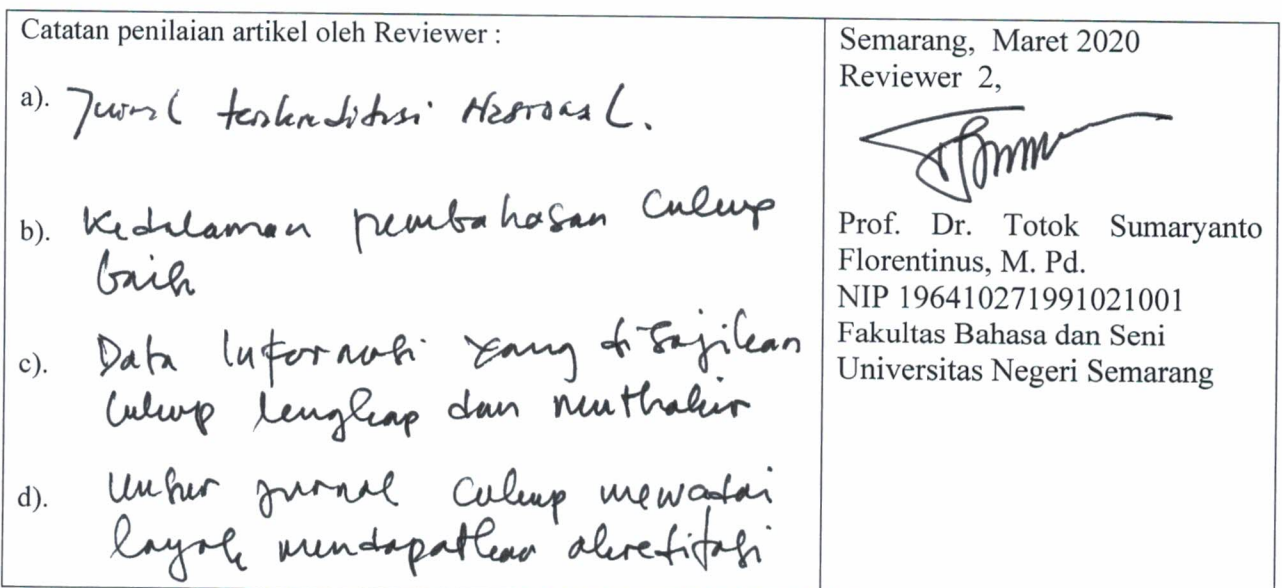 Catatan penilaian artikel oleh Reviewer :
a). Jurnal terakreditasi Nasional.
b). Kedalaman pembahasan cukup
baik
c). Data Informasi yang disajikan
cukup lengkap dan muthakir
d). Unsur jurnal cukup mewadai
layak mendapatkan akreditasi
Semarang, Maret 2020
Reviewer 2,
Prof. Dr. Totok Sumaryanto
Florentinus, M. Pd.
NIP 196410271991021001
Fakultas Bahasa dan Seni
Universitas Negeri Semarang